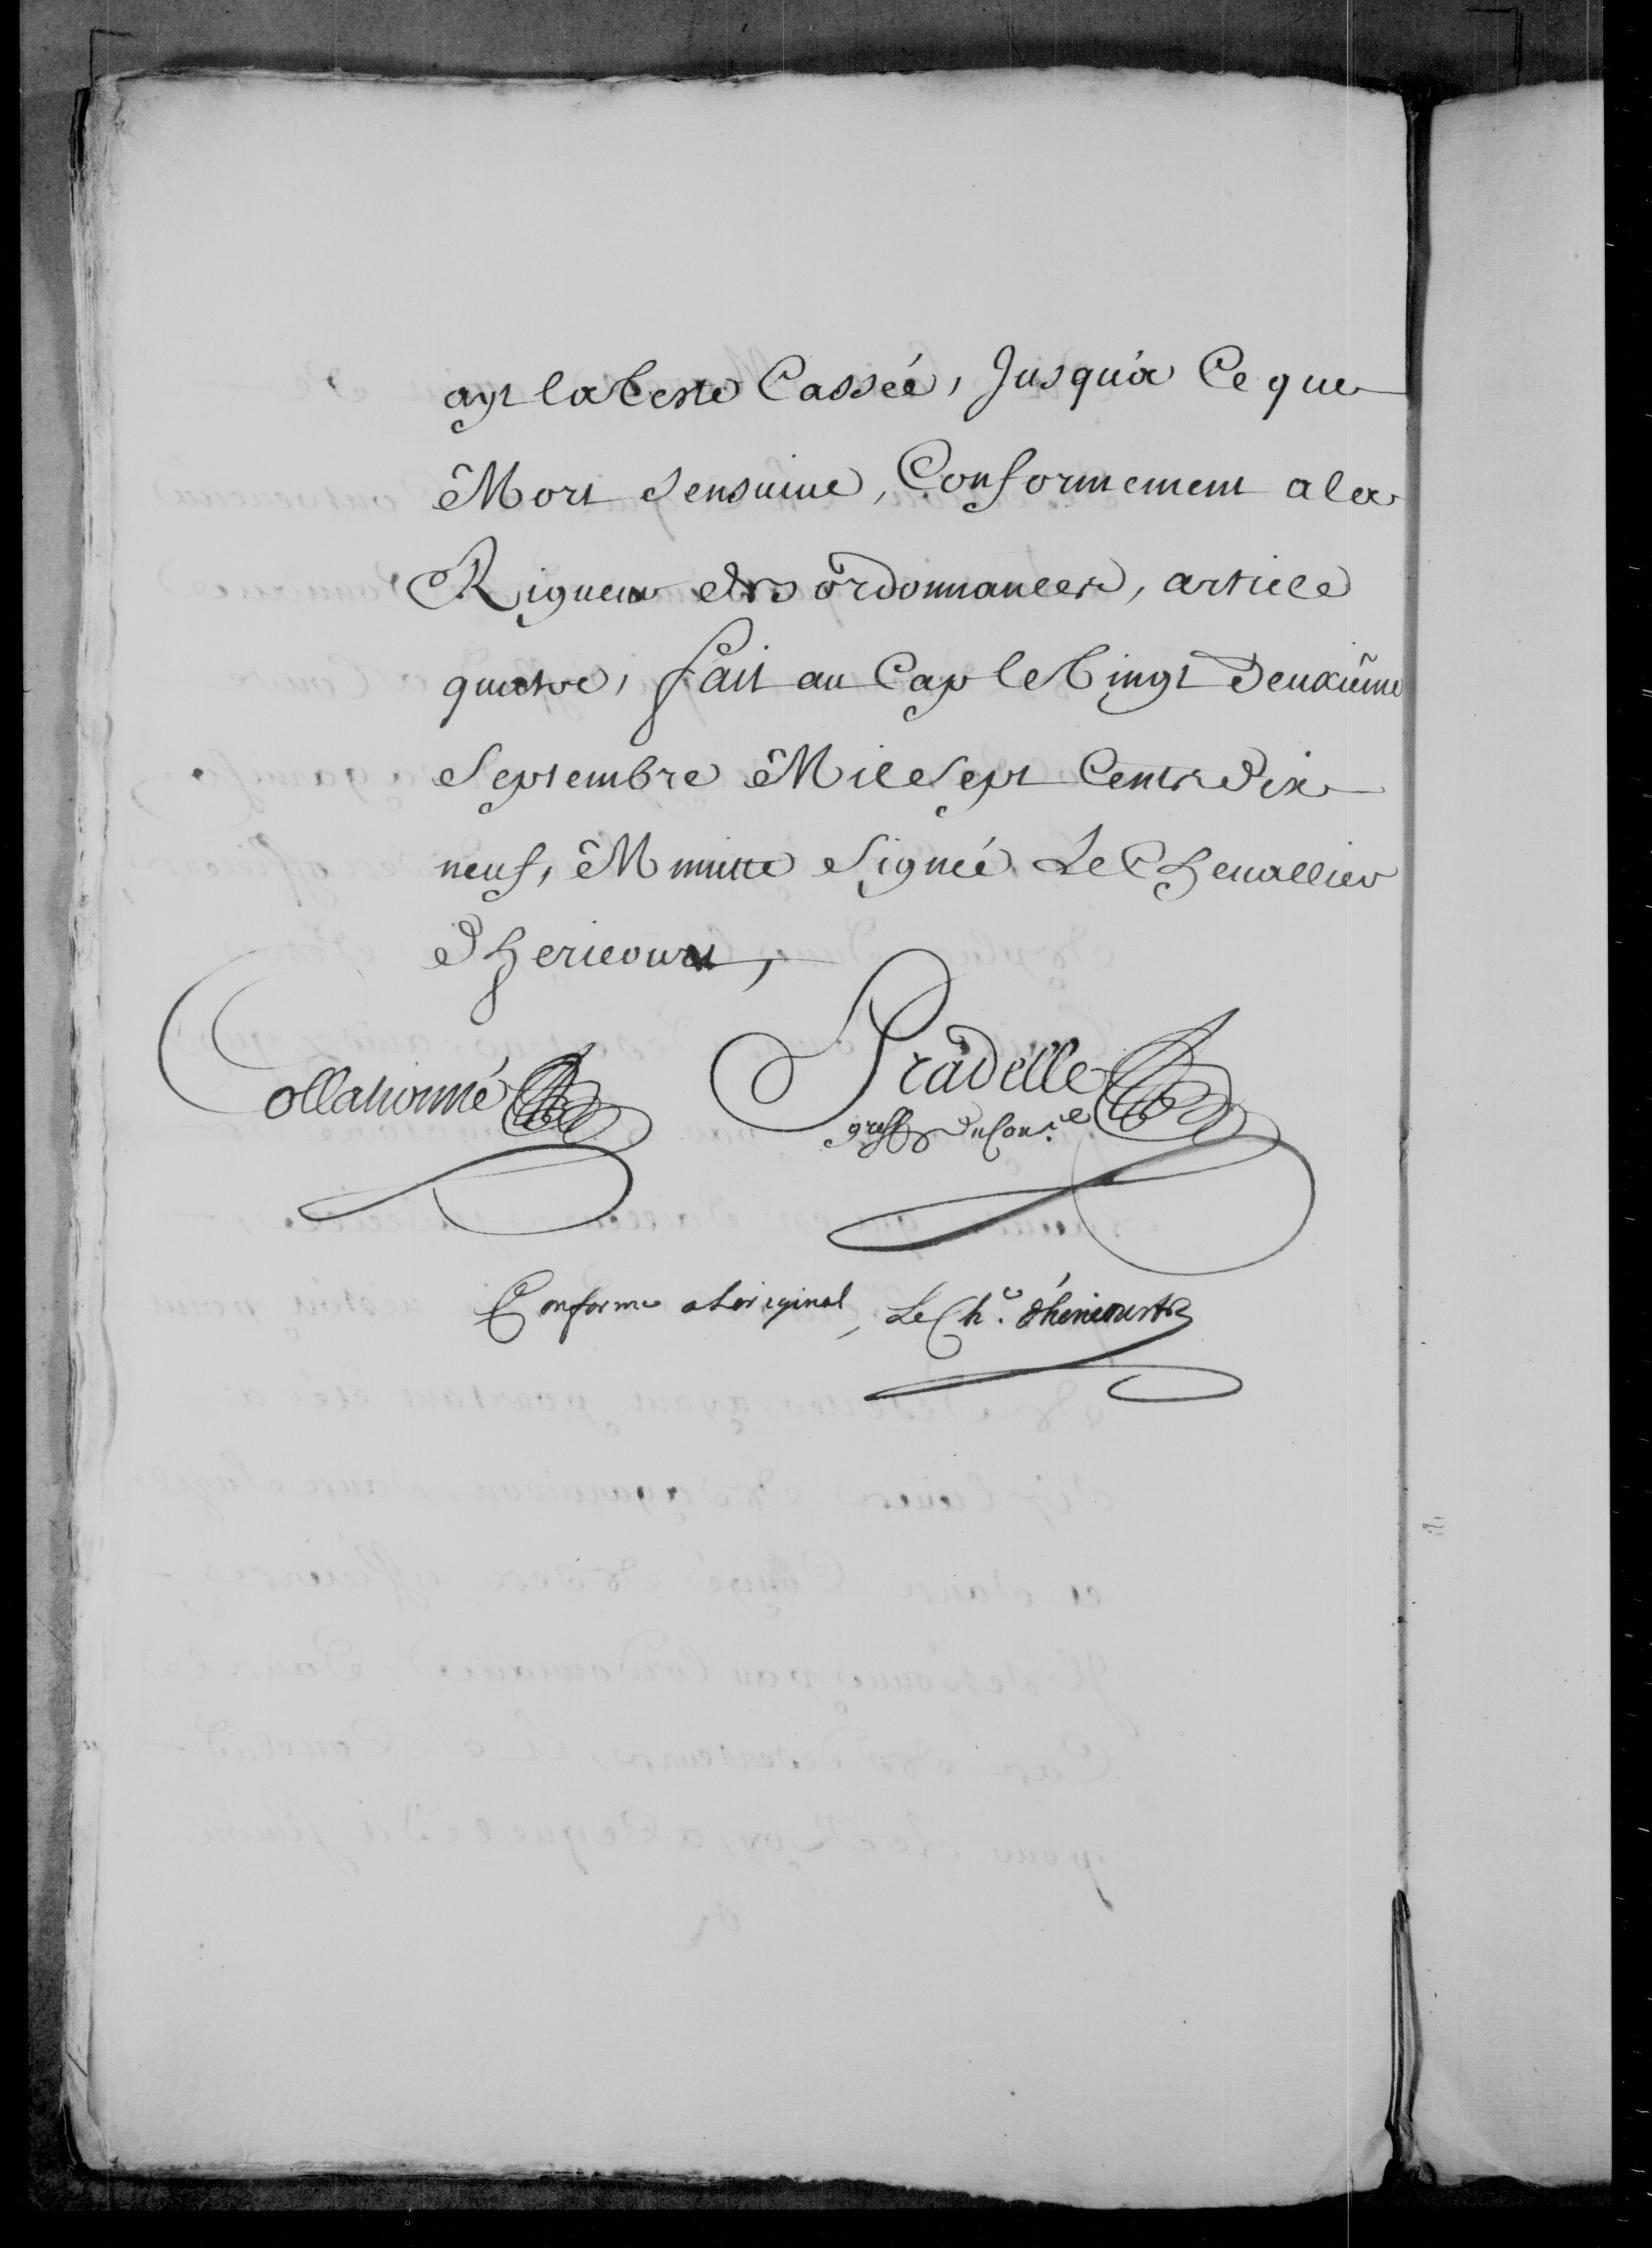 ayt la teste Cassée, Jusqu'a Ce que
Mort sensuive, Conformement a la
Rigueur des ordonnances, article
quatre, fait au Cap le Vingt Deuxiême
Septembre Mil Sept Cents Dix
neuf, Minutte Signée Le Chevallier
Dhericourt,
Collationné
Pradelle
greff. du Con.el
Conforme a Loriginal, Le Ch.r dhericourt